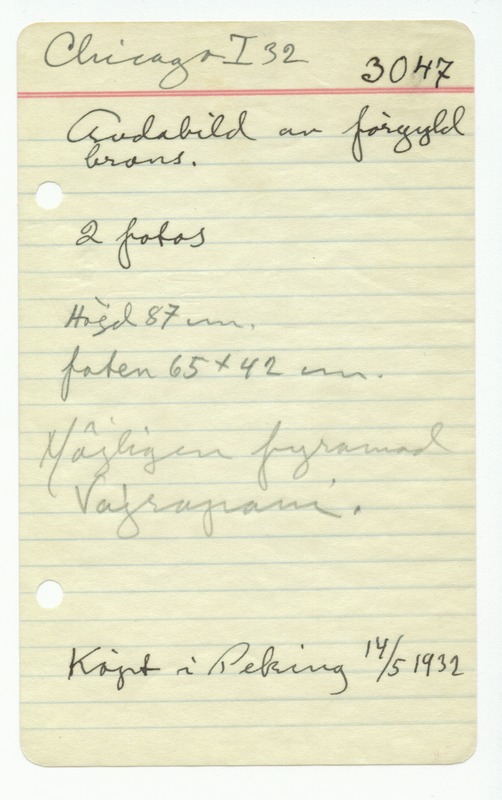 Chicago I 32
3047
Gudabild av förgylld
brons.
2 fotos
Höjd 87 cm.
foten 65 + 42 cm.
Möjligen fyrarmad
Vajrapani.
Köpt i Peking 14/5 1932